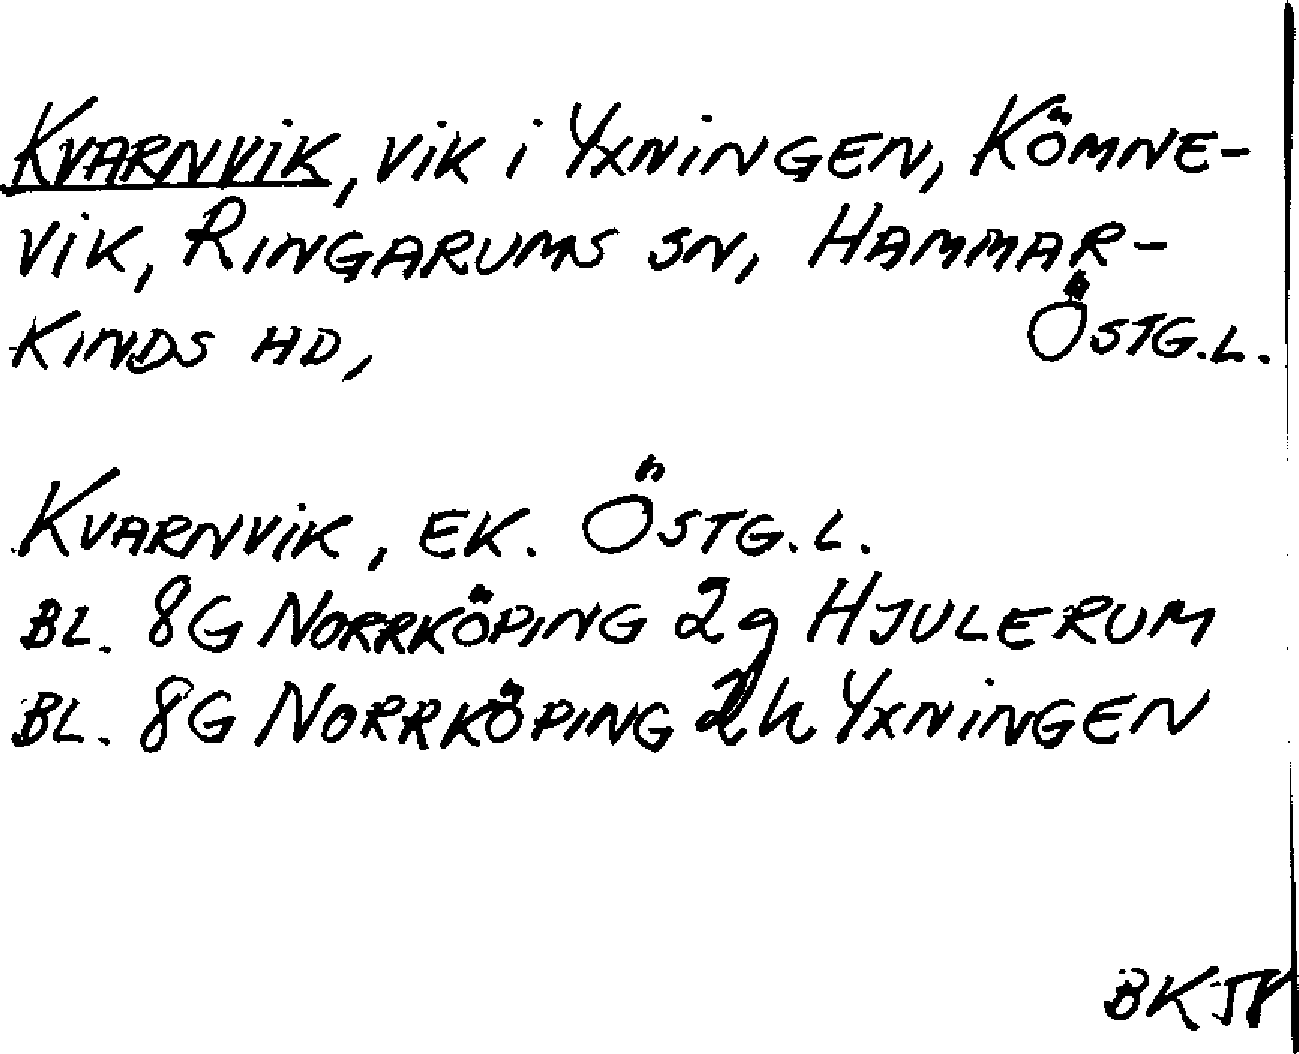 KVARNVIK, VIK i YXNINGEN, KÖMNE-
VIK, RINGARUMS SN, HAMMAR-
KINDS HD, ÖSTG.L.
KVARNVIK, EK. ÖSTG.L.
BL. 8G NORRKÖPING 2g HJULERUM
BL. 8G NORRKÖPING 2h YXNINGEN